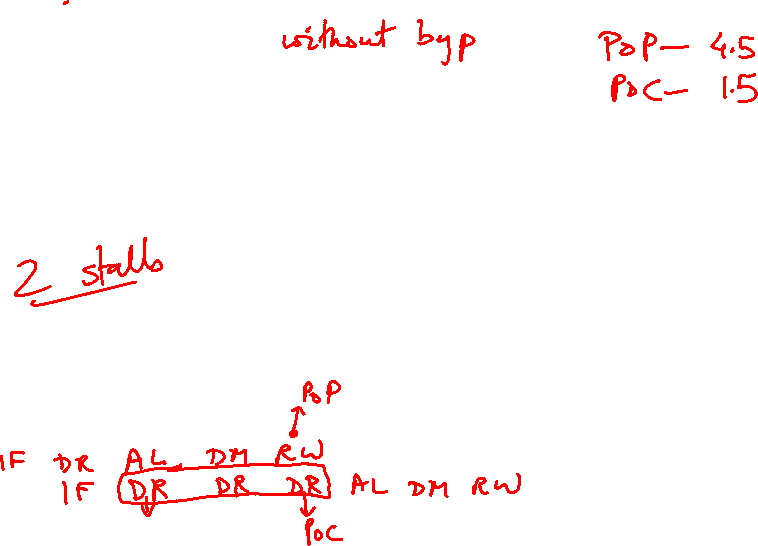 without byp
PoP— 4.5
PoC— 1.5
2 stalls
PoP
IF DR AL DM RW
IF DR DR DR AL DM RW
PoC